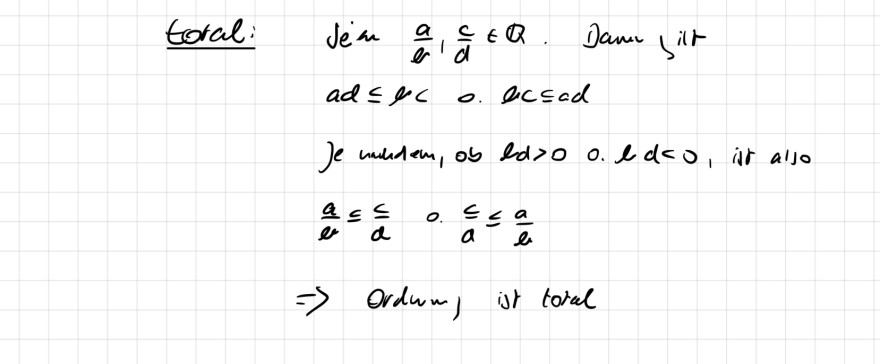 total: Seien a/b, c/d ∈ ℚ. Dann gilt
ad ≤ bc o. bc ≤ ad
Je nachdem, ob bd>0 o. bd<0, ist also
a/b ≤ c/d o. c/d ≤ a/b
=> Ordnung ist total